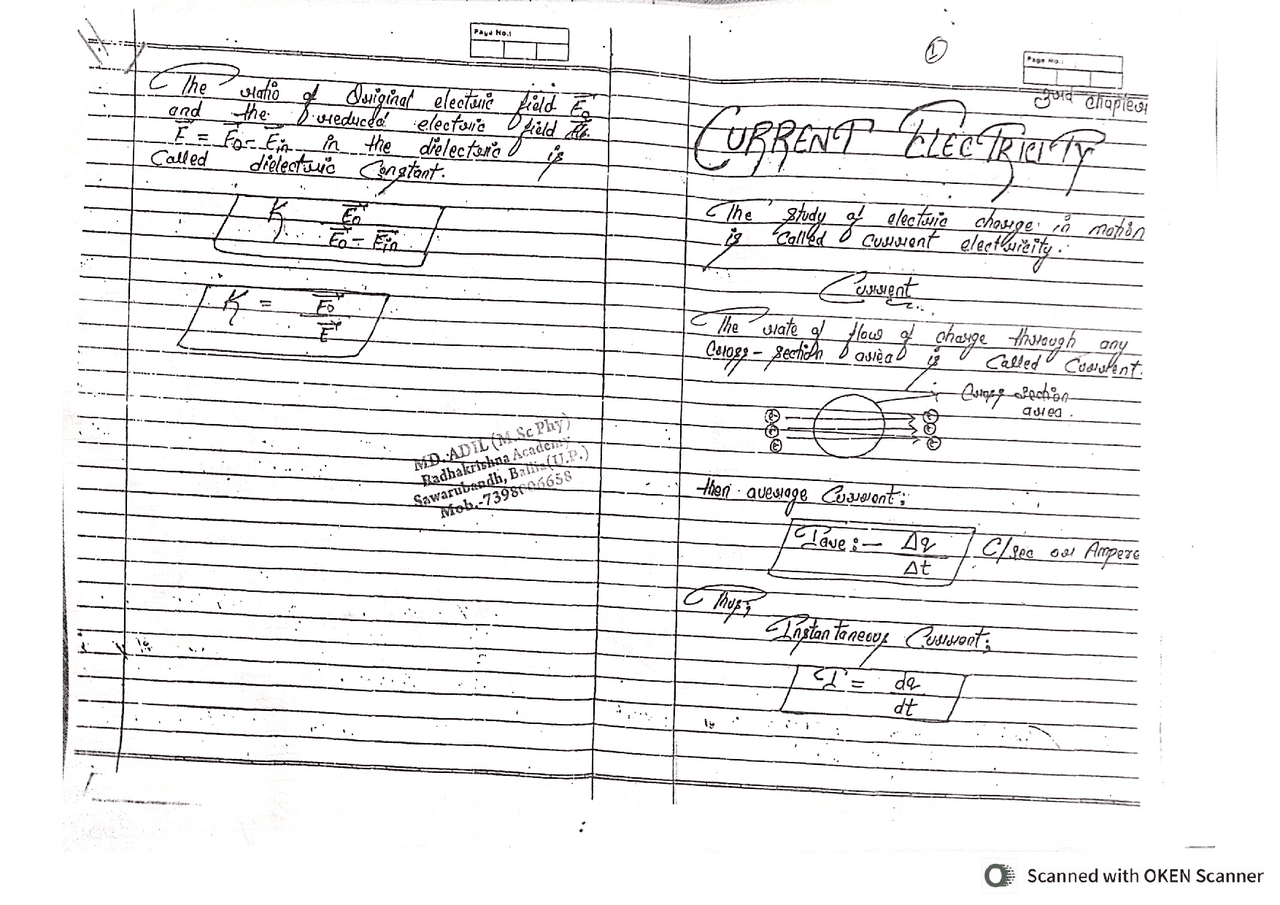 Page No.:
The ratio of Original electric field E₀
and the reduced electric field
E = E₀ - Ein in the dielectric is
Called dielectric Constant.
K E₀ / E₀ - Ein
K = E₀ / E
MD. ADIL (M.Sc Phy)
Radhakrishna Academy
Sawarubandh, Ballia (U.P.)
Mob.-7398006658
1
Page No.:
3rd chapter
CURRENT ELECTRICITY
The study of electric charge in motion
is called current electricity.
Current
The rate of flow of charge through any
Cross-section area is Called Current.
Cross section
area.
then average Current;
Iave :- Δq / Δt C/sec or Ampere
Thus;
Instantaneous Current;
I = dq / dt
Scanned with OKEN Scanner